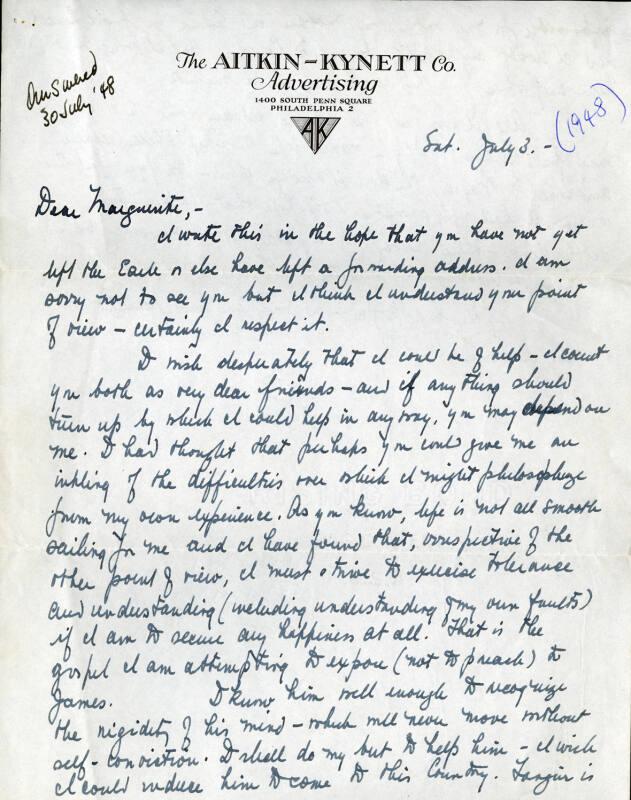 The AITKIN-KYNETT Co.
Advertising
1400 SOUTH PENN SQUARE
PHILADELPHIA 2
AK
Answered
30 July '48
Sat. July 3. -
(1948)
Dear Marguerite, -
I write this in the hope that you have not yet
left the Earle or else have left a forwarding address. I am
sorry not to see you but I think I understand your point
of view - certainly I respect it.
I wish desperately that I could be of help - I count
you both as very dear friends - and if anything should
turn up by which I could help in any way, you may depend on
me. I had thought that perhaps you could give me an
inkling of the difficulties over which I might philosophize
from my own experience. As you know, life is not all smooth
sailing for me and I have found that, irrespective of the
other point of view, I must strive to exercise tolerance
and understanding (including understanding of my own faults)
if I am to secure any happiness at all. That is the
gospel I am attempting to expose (not to preach) to
James. I know him well enough to recognize
the rigidity of his mind - which will never move without
self-conviction. I shall do my best to help him - I wish
I could induce him to come to this Country. Tangier is